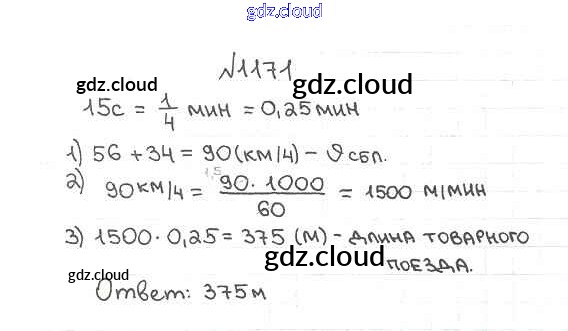 gdz.cloud
№1171
gdz.cloud gdz.cloud
15с = 1/4 мин = 0,25 мин
1) 56 + 34 = 90 (км/ч) – ϑ сбл.
2) 90 км/ч = 90 · 1000 / 60 = 1500 м/мин
1,5
3) 1500 · 0,25 = 375 (м) – длина товарного
gdz.cloud gdz.cloud
поезда.
Ответ: 375 м